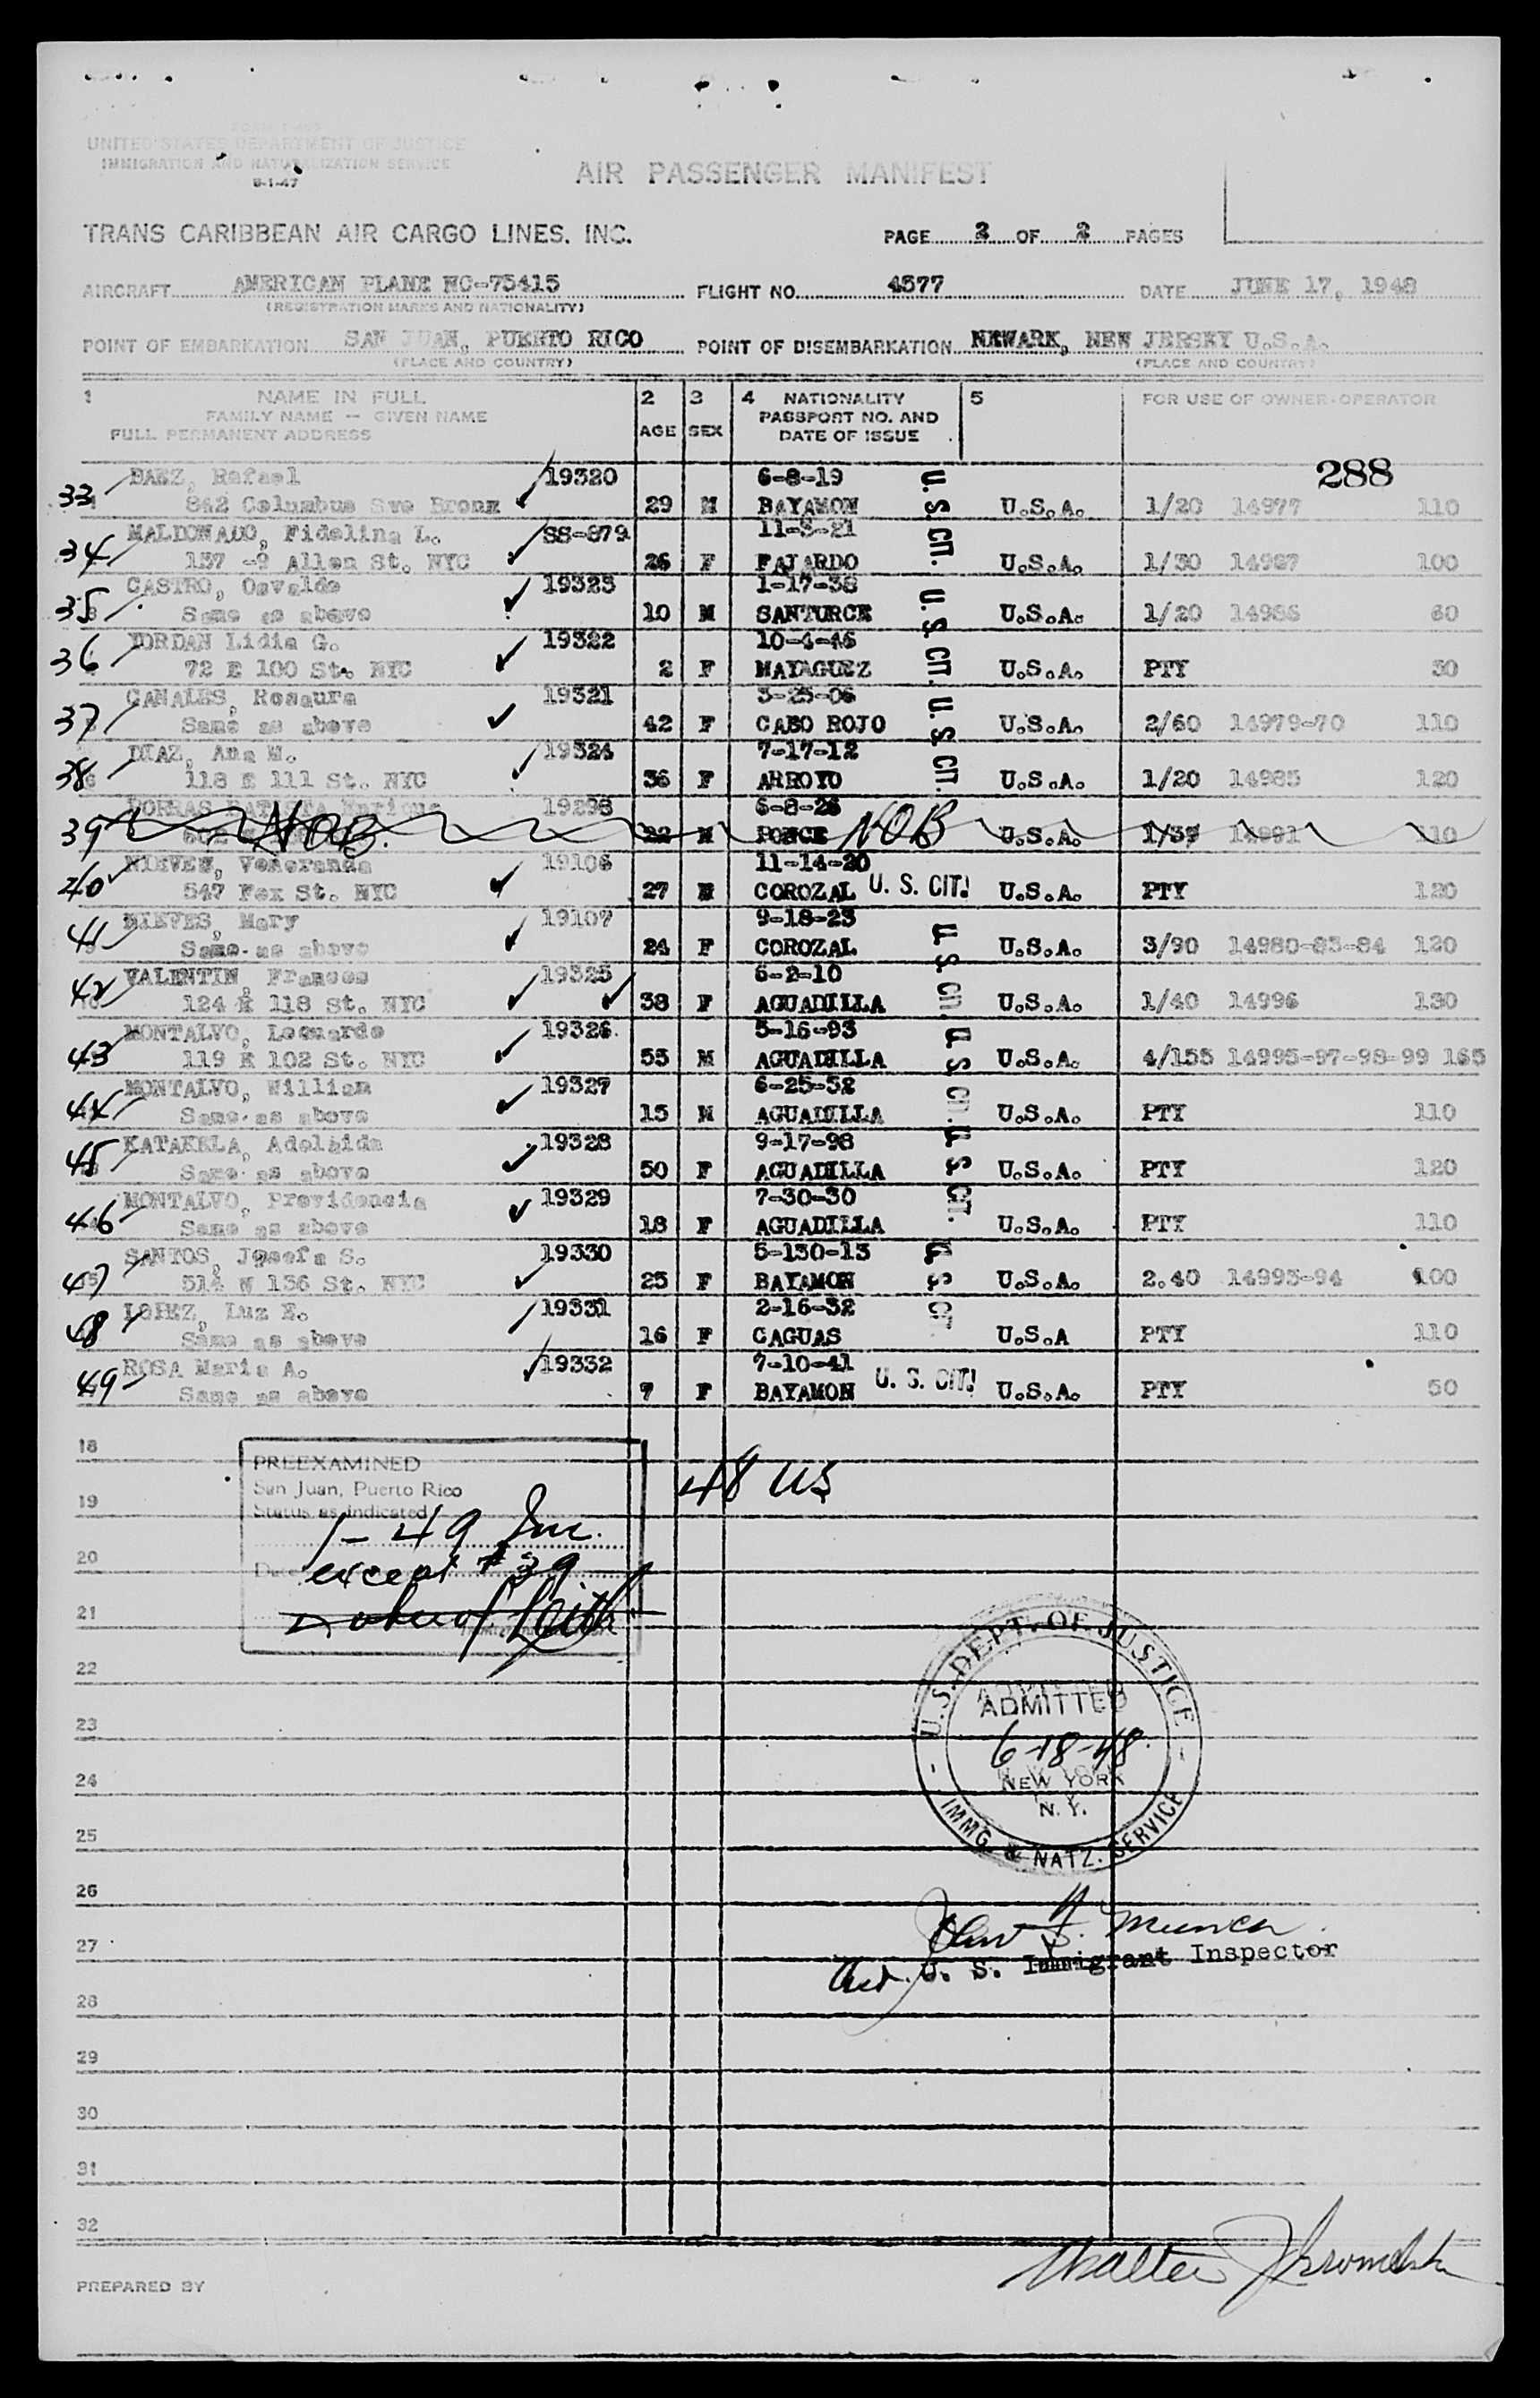 FORM I-466
UNITED STATES DEPARTMENT OF JUSTICE
IMMIGRATION AND NATURALIZATION SERVICE
8-1-47
AIR PASSENGER MANIFEST
TRANS CARIBBEAN AIR CARGO LINES, INC.
PAGE 2 OF 2 PAGES
AIRCRAFT AMERICAN PLANE NC-75415 FLIGHT NO. 4577 DATE JUNE 17, 1948
(REGISTRATION MARKS AND NATIONALITY)
POINT OF EMBARKATION SAN JUAN, PUERTO RICO POINT OF DISEMBARKATION NEWARK, NEW JERSEY U.S.A.
(PLACE AND COUNTRY) (PLACE AND COUNTRY)
1 NAME IN FULL 2 3 4 NATIONALITY 5 FOR USE OF OWNER-OPERATOR
FAMILY NAME — GIVEN NAME PASSPORT NO. AND
FULL PERMANENT ADDRESS AGE SEX DATE OF ISSUE
288
BAEZ, Rafael 19320 6-8-19
33 842 Columbus Ave Bronx 29 M BAYAMON U.S. CIT. U.S.A. 1/20 14977 110
MALDONADO, Fidelina L. SS-879 11-5-21
34 137 -9 Allen St. NYC 26 F FAJARDO U.S.A. 1/30 14987 100
CASTRO, Osvaldo 19323 1-17-38
35 Same as above 10 M SANTURCE U.S. CIT. U.S.A. 1/20 14986 60
YORDAN Lidia G. 19322 10-4-46
36 72 E 100 St. NYC 2 F MAYAGUEZ U.S.A. PTY 30
CANALES, Rosaura 19321 3-25-06
37 Same as above 42 F CABO ROJO U.S. CIT. U.S.A. 2/60 14979-70 110
DIAZ, Ana M. 19324 7-17-12
38 118 E 111 St. NYC 36 F ARROYO U.S.A. 1/20 14985 120
PORRAS BATISTA Enrique 19298 6-8-26
39 NOB. 22 M PONCE NOB U.S.A. 1/37 14991 110
NIEVES, Veneranda 19106 11-14-20
40 547 Fox St. NYC 27 M COROZAL U. S. CIT. U.S.A. PTY 120
NIEVES, Mary 19107 9-18-23
41 Same as above 24 F COROZAL U. S. CIT. U.S.A. 3/90 14980-83-84 120
VALENTIN, Frances 19325 6-2-10
42 124 E 118 St. NYC 38 F AGUADILLA U.S.A. 1/40 14996 130
MONTALVO, Leonardo 19326 5-16-93
43 119 E 102 St. NYC 55 M AGUADILLA U. S. CIT. U.S.A. 4/155 14995-97-98-99 165
MONTALVO, William 19327 6-25-32
44 Same as above 15 M AGUADILLA U.S.A. PTY 110
19328 9-17-98
45 Same as above 50 F AGUADILLA U. S. CIT. U.S.A. PTY 120
MONTALVO, Providencia 19329 7-30-30
46 Same as above 18 F AGUADILLA U.S.A. PTY 110
SANTOS, Josefa S. 19330 5-130-13
47 514 W 136 St. NYC 25 F BAYAMON U. S. CIT. U.S.A. 2.40 14993-94 100
LOPEZ, Luz E. 19331 2-16-32
48 Same as above 16 F CAGUAS U.S.A PTY 110
ROSA Maria A. 19332 7-10-41
49 Same as above 7 F BAYAMON U. S. CIT. U.S.A. PTY 50
18
PREEXAMINED
San Juan, Puerto Rico
48 US
19
Status as indicated
1-49 Inc.
20
Date except #39
21
22
23
24
25
26
27
28
29
30
31
32
U.S. DEPT. OF JUSTICE
ADMITTED
6-18-48
NEW YORK
N. Y.
IMMG & NATZ. SERVICE
U. S. Immigrant Inspector
Walter
PREPARED BY